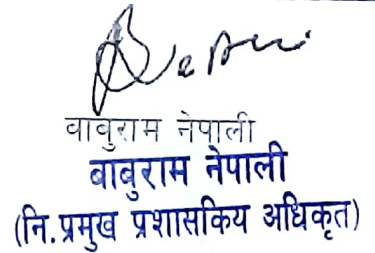 वावुराम नेपाली
बाबुराम नेपाली
(नि.प्रमुख प्रशासकिय अधिकृत)